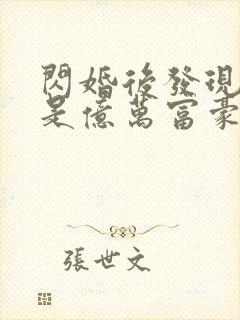 閃婚後發現
是億萬富豪
張世文